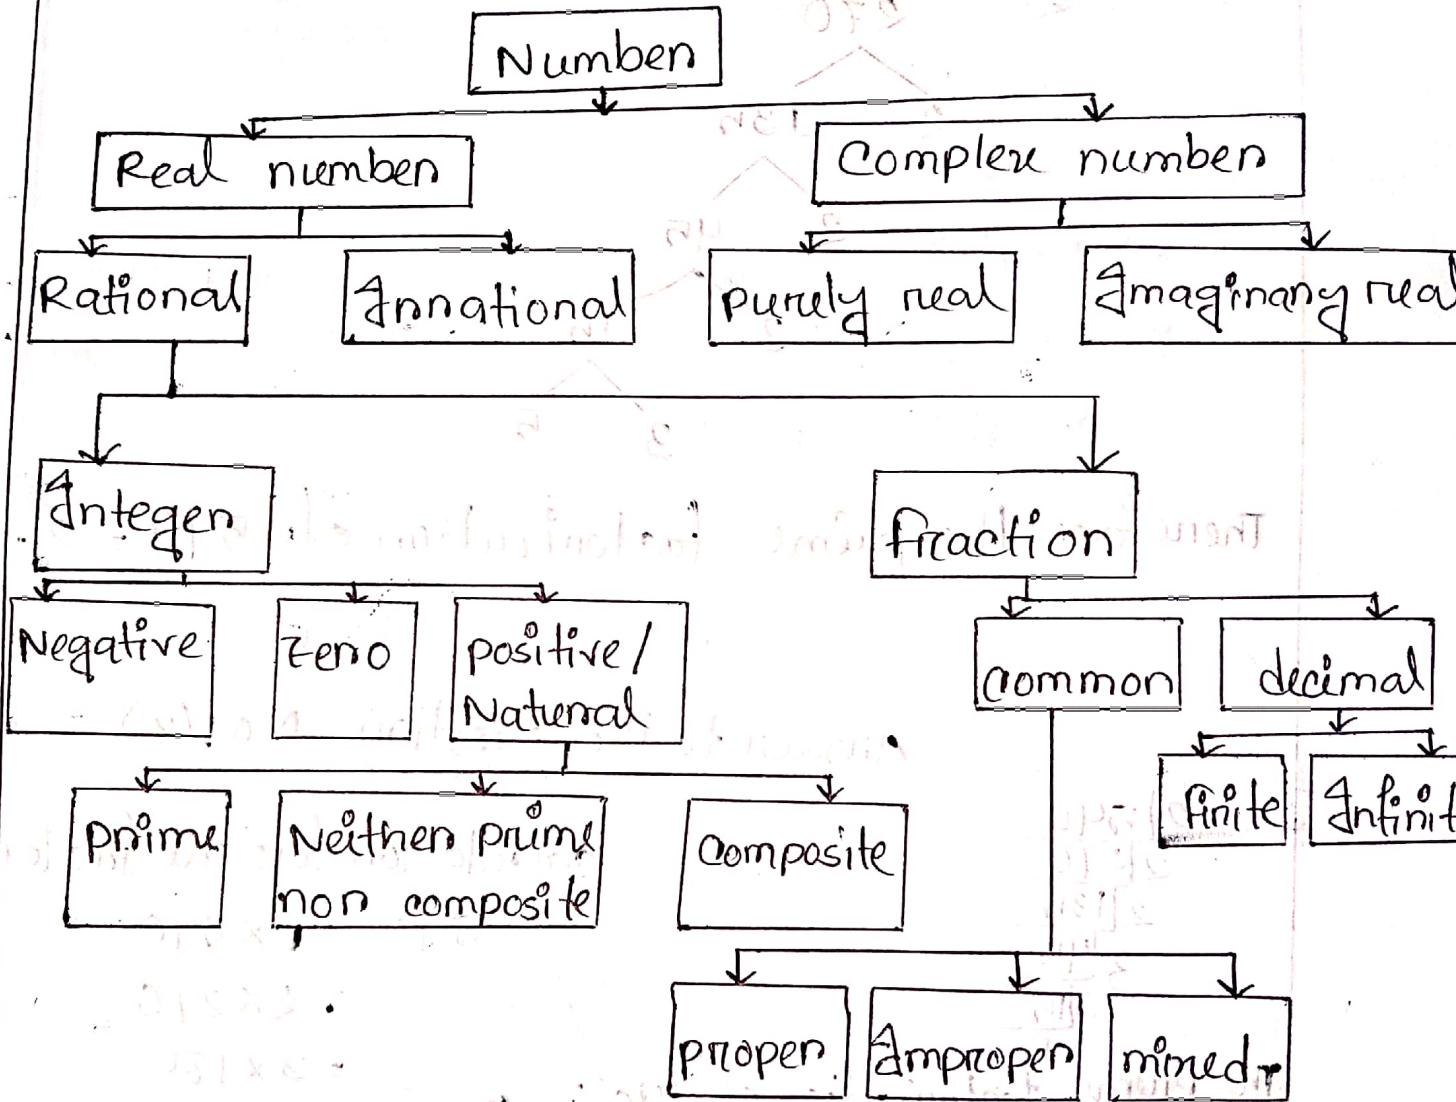 Number
Real number
Complex number
Rational
Irrational
purely real
Imaginary real
Integer
fraction
Negative
Zero
positive/
Natural
common
decimal
finite
Infinit
prime
Neither prime
nor composite
composite
proper
Improper
mixed